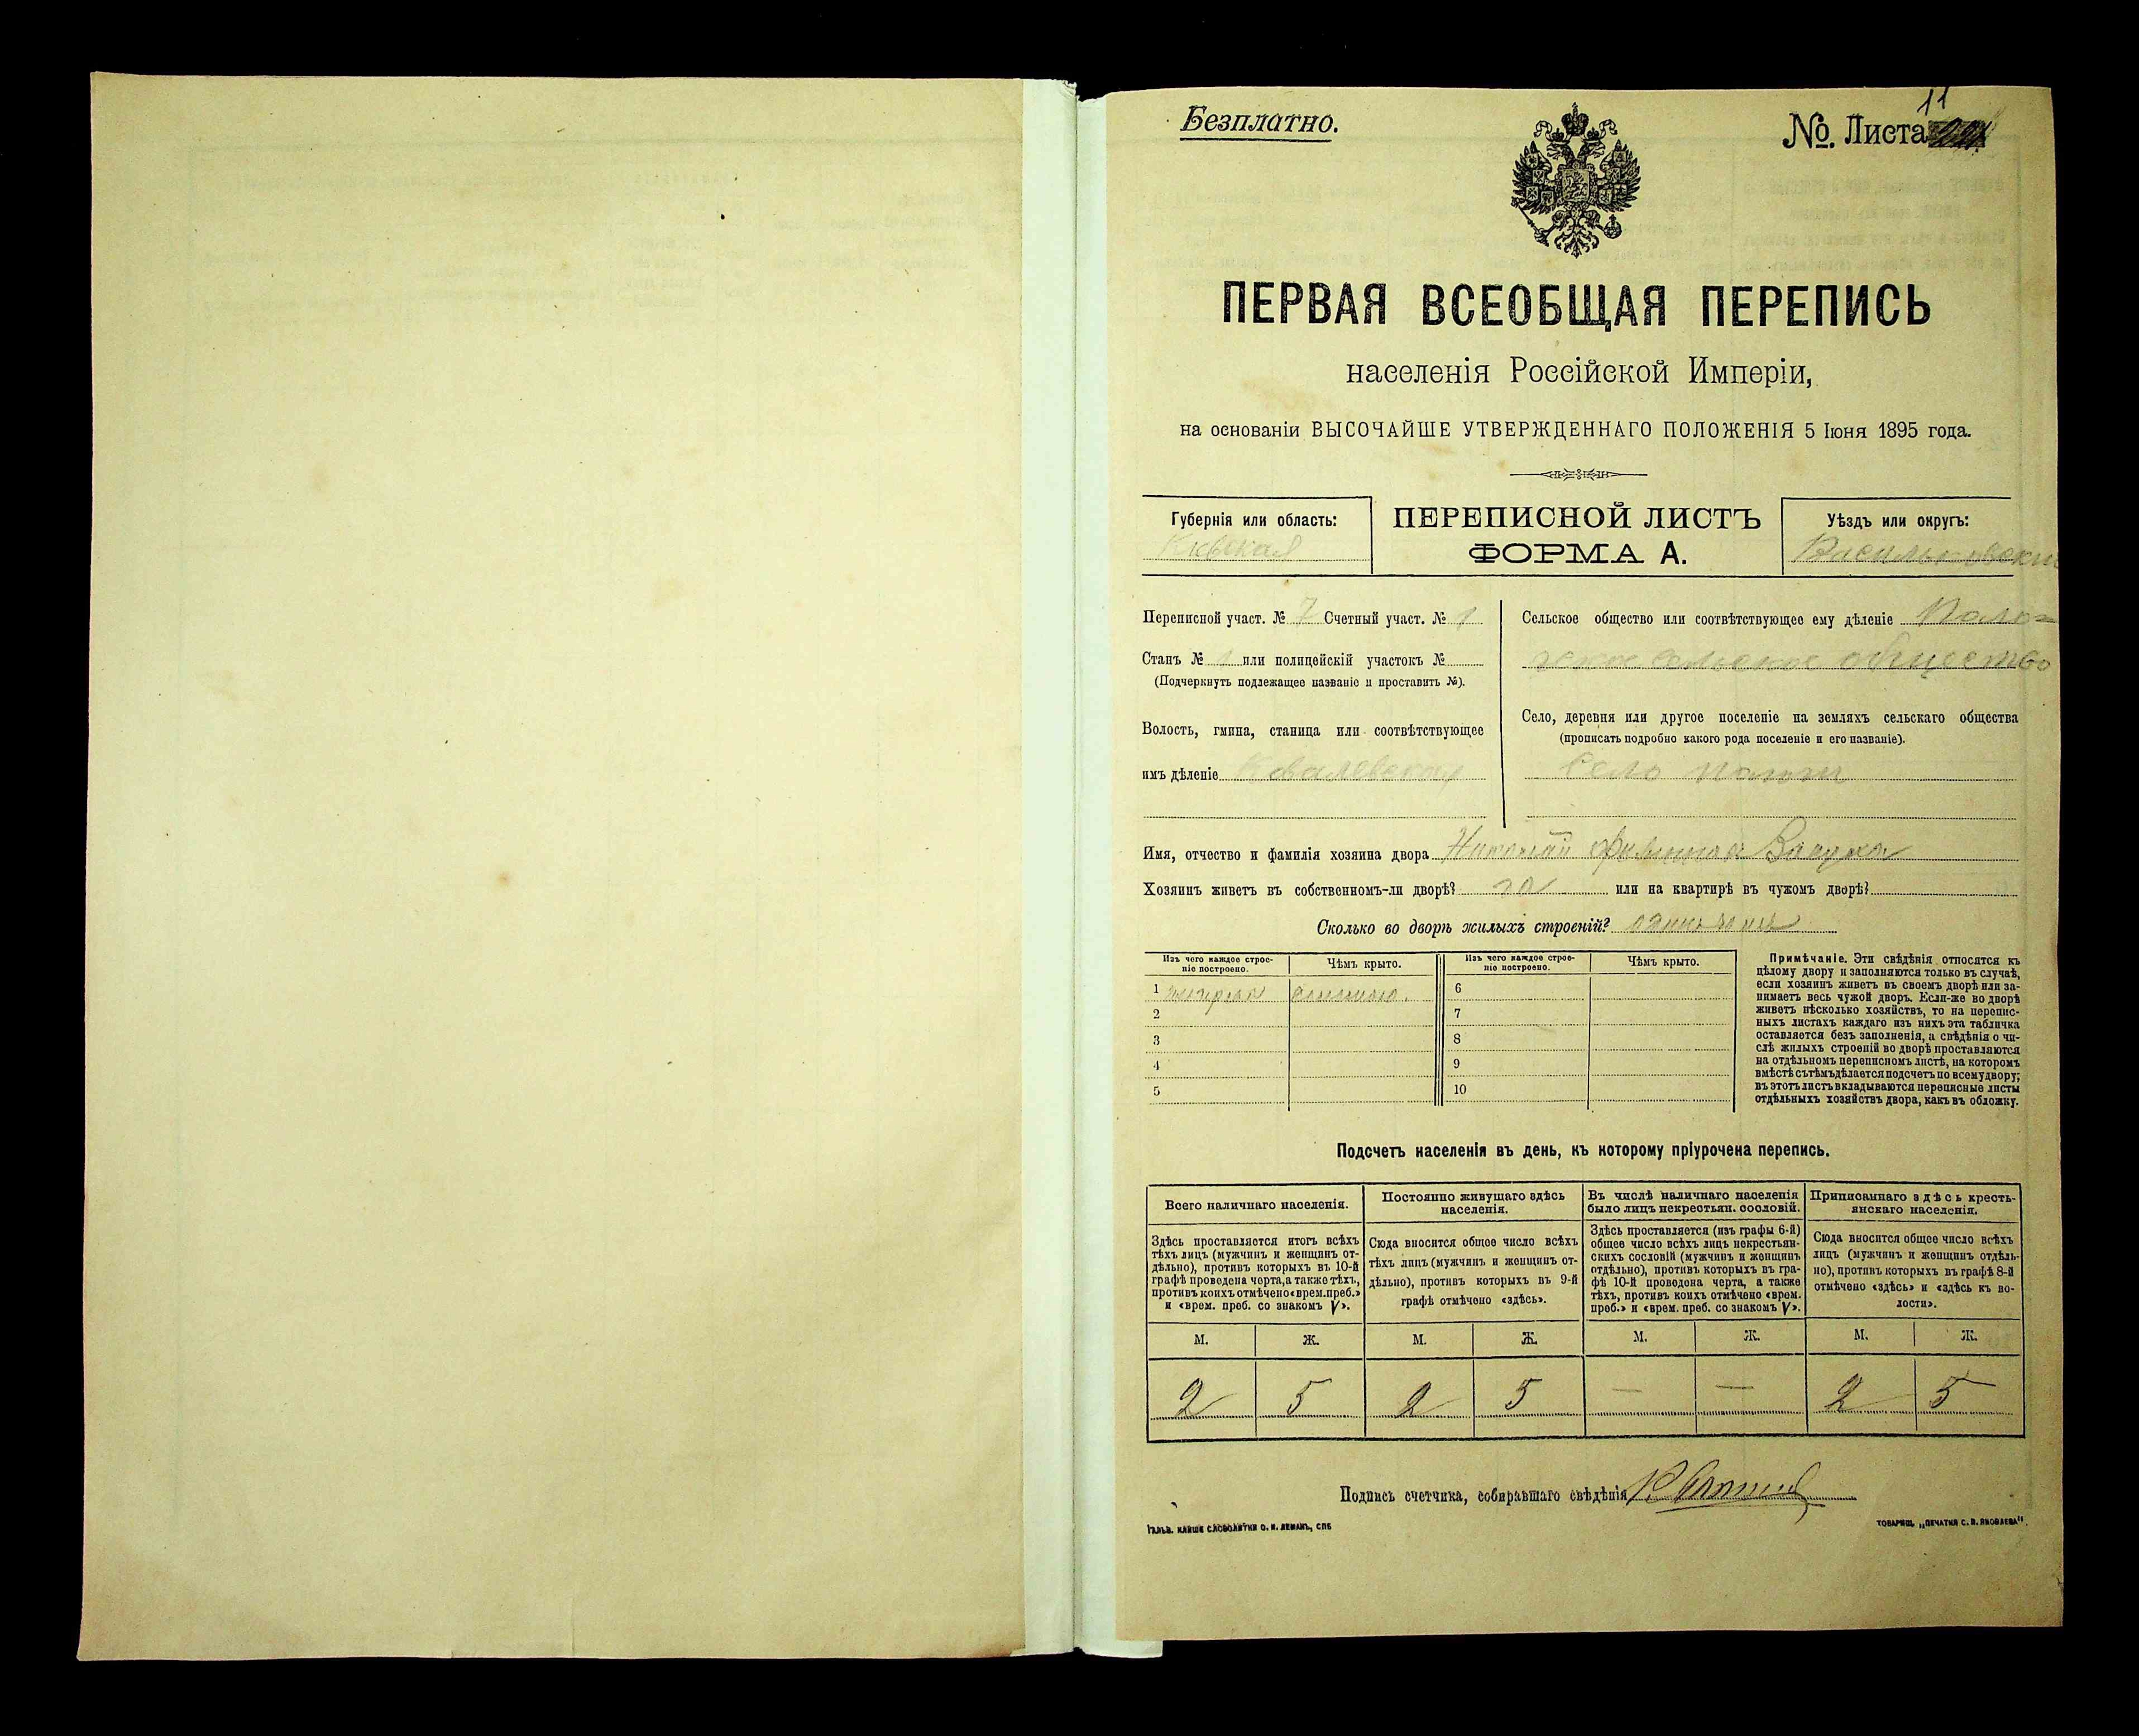 Безплатно.
№. Листа 11
ПЕРВАЯ ВСЕОБЩАЯ ПЕРЕПИСЬ
населенія Россійской Имперіи,
на основаніи ВЫСОЧАЙШЕ УТВЕРЖДЕННАГО ПОЛОЖЕНІЯ 5 Іюня 1895 года.
Губернія или область:
Кіевская
ПЕРЕПИСНОЙ ЛИСТЪ
ФОРМА А.
Уѣздъ или округъ:
Васильковскій
Переписной участ. № 7 Счетный участ. № 1
Станъ № 1 или полицейскій участокъ №
(Подчеркнуть подлежащее названіе и проставить №).
Волость, гмина, станица или соотвѣтствующее
имъ дѣленіе Ковалевская
Сельское общество или соотвѣтствующее ему дѣленіе
сельское общество
Село, деревня или другое поселеніе на земляхъ сельскаго общества
(прописать подробно какого рода поселеніе и его названіе).
Село
Имя, отчество и фамилія хозяина двора
Хозяинъ живетъ въ собственномъ-ли дворѣ? да или на квартирѣ въ чужомъ дворѣ?
Сколько во дворѣ жилыхъ строеній?
Изъ чего каждое строе-
ніе построено.
Чѣмъ крыто.
Изъ чего каждое строе-
ніе построено.
Чѣмъ крыто.
1 соломою.
2
3
4
5
6
7
8
9
10
Примѣчаніе. Эти свѣдѣнія относятся къ
цѣлому двору и заполняются только въ случаѣ,
если хозяинъ живетъ въ своемъ дворѣ или за-
нимаетъ весь чужой дворъ. Если-же во дворѣ
живетъ нѣсколько хозяйствъ, то на перепис-
ныхъ листахъ каждаго изъ нихъ эта табличка
оставляется безъ заполненія, а свѣдѣнія о чи-
слѣ жилыхъ строеній во дворѣ проставляются
на отдѣльномъ переписномъ листѣ, на которомъ
вмѣстѣ съ тѣмъ дѣлается подсчетъ по всему двору;
въ этотъ листъ вкладываются переписные листы
отдѣльныхъ хозяйствъ двора, какъ въ обложку.
Подсчетъ населенія въ день, къ которому пріурочена перепись.
Всего наличнаго населенія.
Здѣсь проставляется итогъ всѣхъ
тѣхъ лицъ (мужчинъ и женщинъ от-
дѣльно), противъ которыхъ въ 10-й
графѣ проведена черта, а также тѣхъ,
противъ коихъ отмѣчено «врем. преб.»
и «врем. преб. со знакомъ V».
Постоянно живущаго здѣсь
населенія.
Сюда вносится общее число всѣхъ
тѣхъ лицъ (мужчинъ и женщинъ от-
дѣльно), противъ которыхъ въ 9-й
графѣ отмѣчено «здѣсь».
Въ числѣ наличнаго населенія
было лицъ некрестьян. сословій.
Здѣсь проставляется (изъ графы 6-й)
общее число всѣхъ лицъ некрестьян-
скихъ сословій (мужчинъ и женщинъ
отдѣльно), противъ которыхъ въ гра-
фѣ 10-й проведена черта, а также
тѣхъ, противъ коихъ отмѣчено «врем.
преб.» и «врем. преб. со знакомъ V».
Приписаннаго здѣсь кресть-
янскаго населенія.
Сюда вносится общее число всѣхъ
лицъ (мужчинъ и женщинъ отдѣль-
но), противъ которыхъ въ графѣ 8-й
отмѣчено «здѣсь» и «здѣсь къ во-
лости».
М. Ж. М. Ж. М. Ж. М. Ж.
2 5 2 5 — — 2 5
Подпись счетчика, собиравшаго свѣдѣнія
ГАЛЬВ. КЛИШЕ СЛОВОЛИТНИ О. И. ЛЕМАНЪ, СПБ
ТОВАРИЩ. „ПЕЧАТНЯ С. П. ЯКОВЛЕВА".